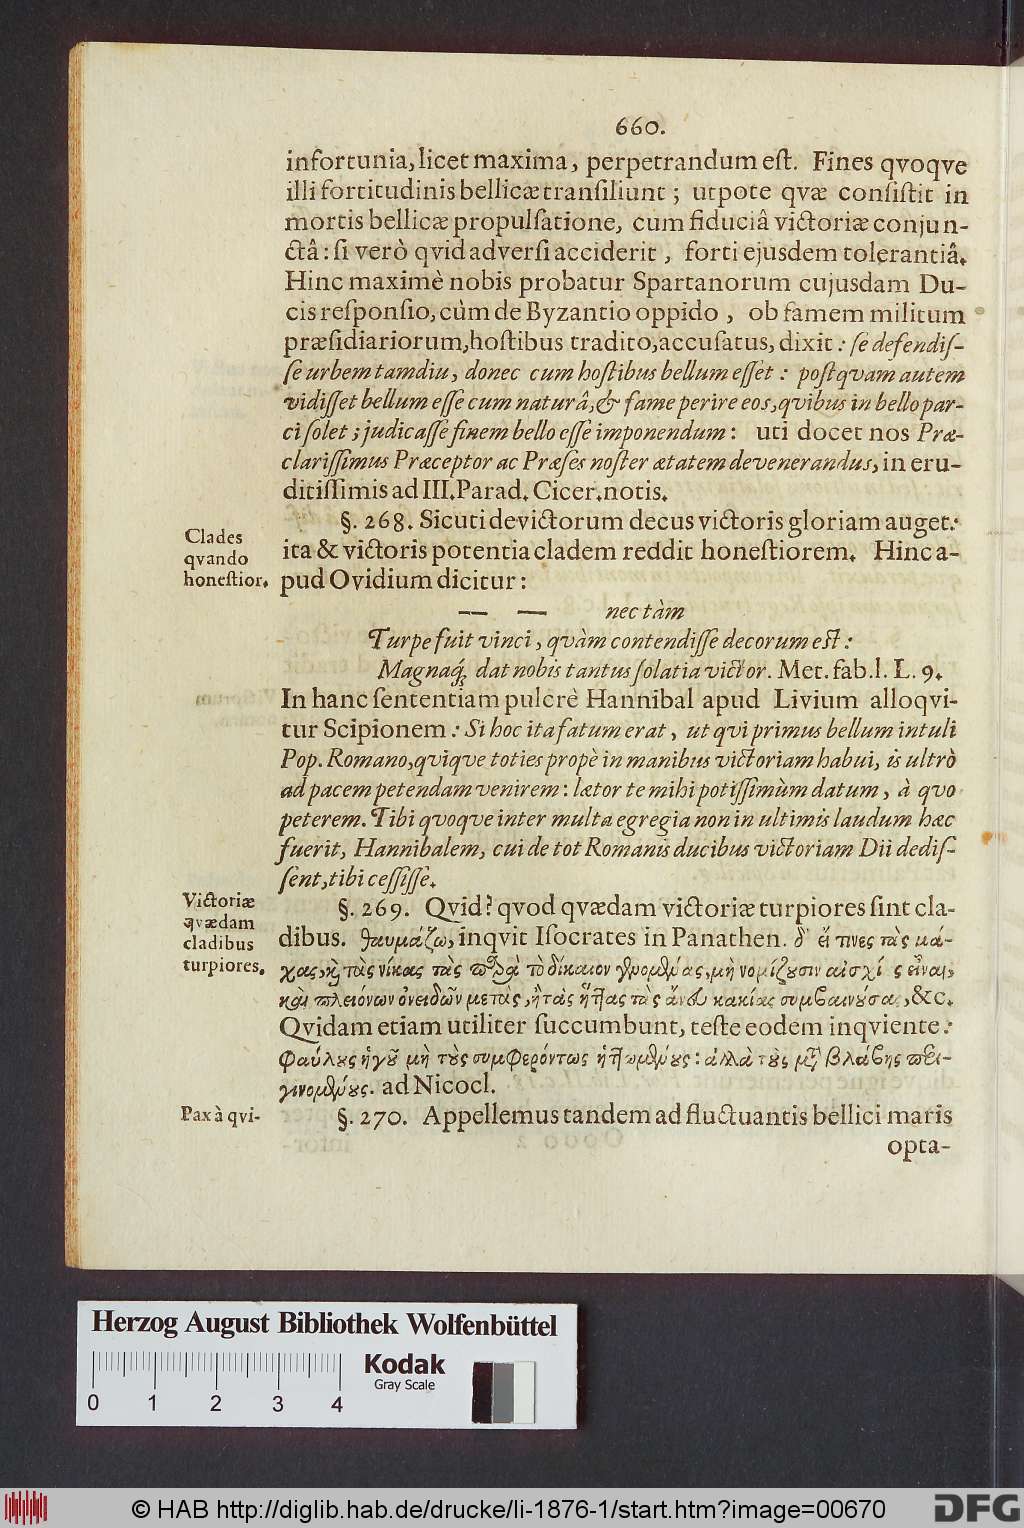 660.
infortunia, licet maxima, perpetrandum est. Fines qvoqve
illi fortitudinis bellicæ transiliunt; utpote qvæ consistit in
mortis bellicæ propulsatione, cum fiduciâ victoriæ conjun-
ctâ: si verò qvid adversi acciderit, forti ejusdem tolerantiâ.
Hinc maximè nobis probatur Spartanorum cujusdam Du-
cis responsio, cùm de Byzantio oppido, ob famem militum
præsidiariorum, hostibus tradito, accusatus, dixit: se defendis-
se urbem tamdiu, donec cum hostibus bellum esset: postqvam autem
vidisset bellum esse cum naturâ, & fame perire eos, qvibus in bello par-
ci solet; judicasse finem bello esse imponendum: uti docet nos Præ-
clarissimus Præceptor ac Præses noster ætatem devenerandus, in eru-
ditissimis ad III. Parad. Cicer. notis.
Clades
qvando
honestior.
§. 268. Sicuti devictorum decus victoris gloriam auget:
ita & victoris potentia cladem reddit honestiorem. Hinc a-
pud Ovidium dicitur:
— — nec tàm
Turpe fuit vinci, quàm contendisse decorum est:
Magnaq; dat nobis tantus solatia victor. Met. fab. l. L. 9.
In hanc sententiam pulcrè Hannibal apud Livium alloqvi-
tur Scipionem: Si hoc ita fatum erat, ut qui primus bellum intuli
Pop. Romano, quique toties propè in manibus victoriam habui, is ultrò
ad pacem petendam venirem: lætor te mihi potissimùm datum, à quo
peterem. Tibi quoque inter multa egregia non in ultimis laudum hæc
fuerit, Hannibalem, cui de tot Romanis ducibus victoriam Dii dedis-
sent, tibi cessisse.
Victoriæ
qvædam
cladibus
turpiores.
§. 269. Qvid? qvod qvædam victoriæ turpiores sint cla-
dibus. θαυμάζω, inqvit Isocrates in Panathen. δ' εἴ τινες τὰς μά-
χας, καὶ τὰς νίκας τὰς παρὰ τὸ δίκαιον γενομένας, μὴ νομίζουσιν αἰσχί ς εἶναι,
καὶ πλειόνων ὀνειδῶν μετὰς, ἢ τὰς ἥττας τὰς ἄνευ κακίας συμβαινούσας, &c.
Qvidam etiam utiliter succumbunt, teste eodem inqviente:
Φαύλους ἡγοῦ μὴ τοὺς συμφερόντως ἡττωμένους: ἀλλὰ τοὺς μετὰ βλάβης περι-
γινομένους. ad Nicocl.
Pax à qvi-
§. 270. Appellemus tandem ad fluctuantis bellici maris
opta-
Herzog August Bibliothek Wolfenbüttel
Kodak
Gray Scale
0 1 2 3 4
© HAB http://diglib.hab.de/drucke/li-1876-1/start.htm?image=00670
DFG